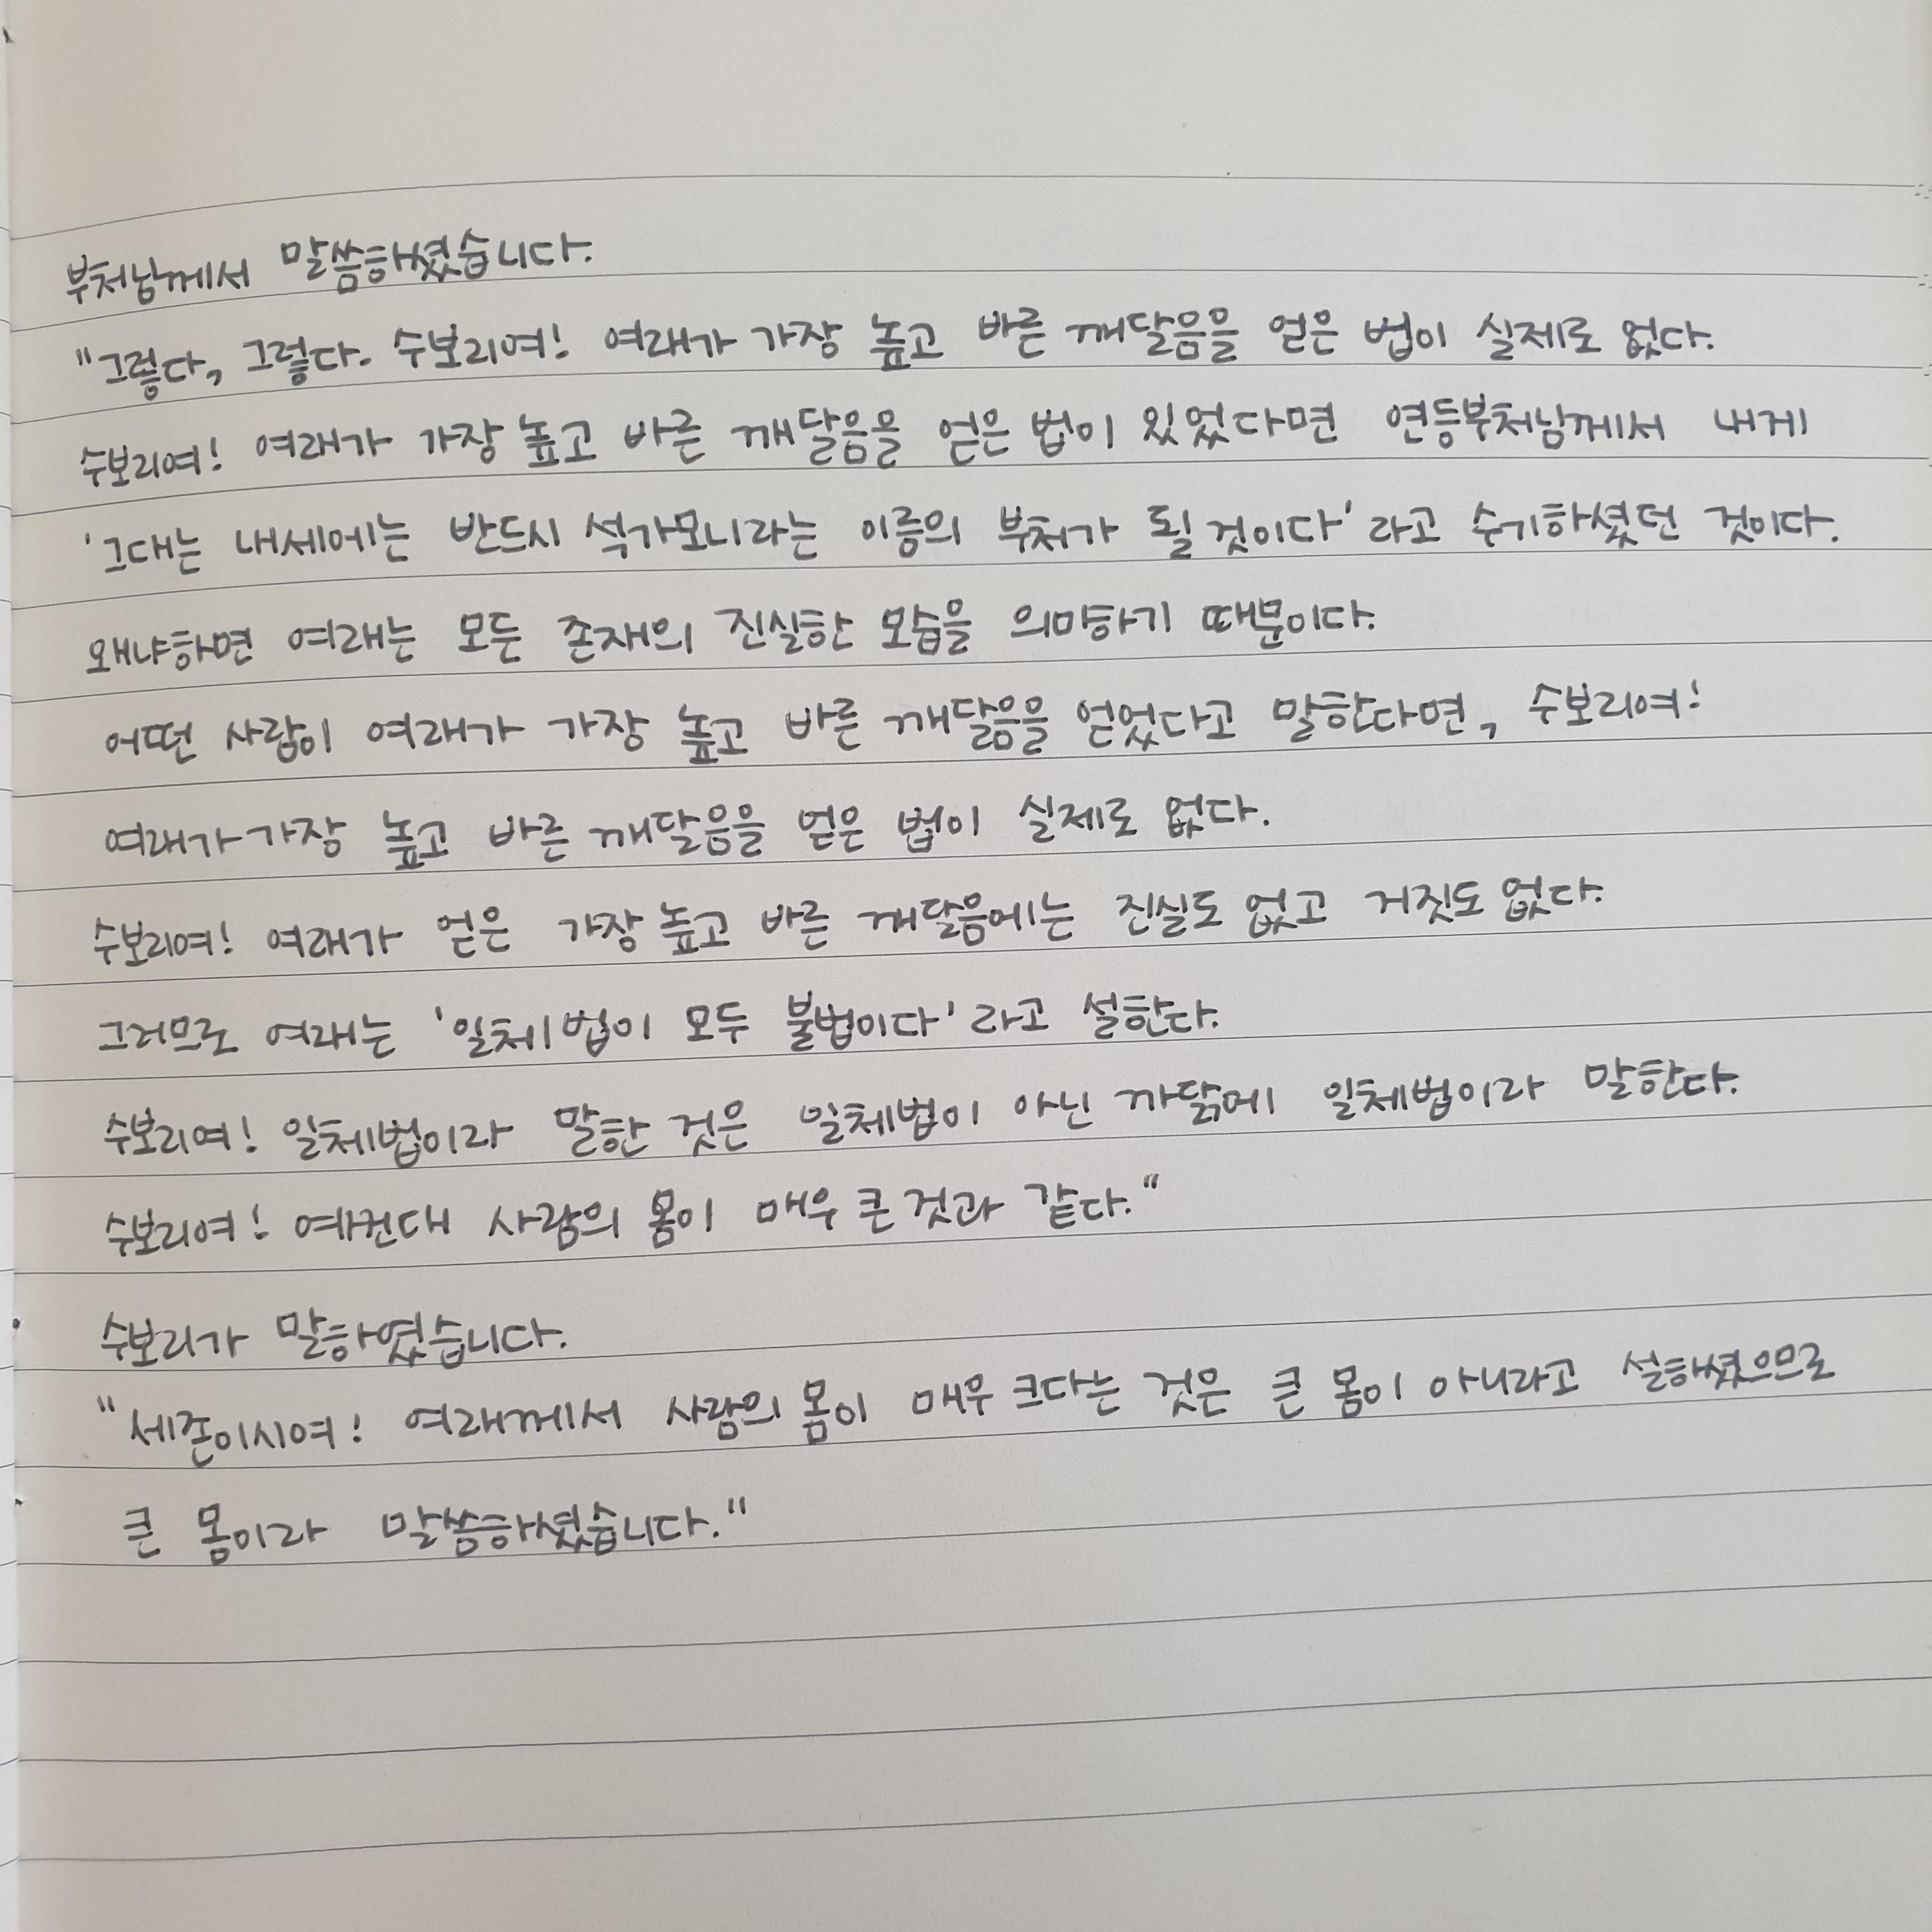 부처님께서 말씀하셨습니다.
"그렇다, 그렇다. 수보리여! 여래가 가장 높고 바른 깨달음을 얻은 법이 실제로 없다.
수보리여! 여래가 가장 높고 바른 깨달음을 얻은 법이 있었다면 연등부처님께서 내게
'그대는 내세에는 반드시 석가모니라는 이름의 부처가 될 것이다'라고 수기하셨던 것이다.
왜냐하면 여래는 모든 존재의 진실한 모습을 의미하기 때문이다.
어떤 사람이 여래가 가장 높고 바른 깨달음을 얻었다고 말한다면, 수보리여!
여래가 가장 높고 바른 깨달음을 얻은 법이 실제로 없다.
수보리여! 여래가 얻은 가장 높고 바른 깨달음에는 진실도 없고 거짓도 없다.
그러므로 여래는 '일체법이 모두 불법이다'라고 설한다.
수보리여! 일체법이라 말한 것은 일체법이 아닌 까닭에 일체법이라 말한다.
수보리여! 예컨대 사람의 몸이 매우 큰 것과 같다."
수보리가 말하였습니다.
"세존이시여! 여래께서 사람의 몸이 매우 크다는 것은 큰 몸이 아니라고 설하셨으므로
큰 몸이라 말씀하셨습니다."